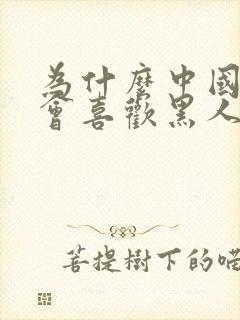 為什麼中國
會喜歡黑人
菩提樹下的喵